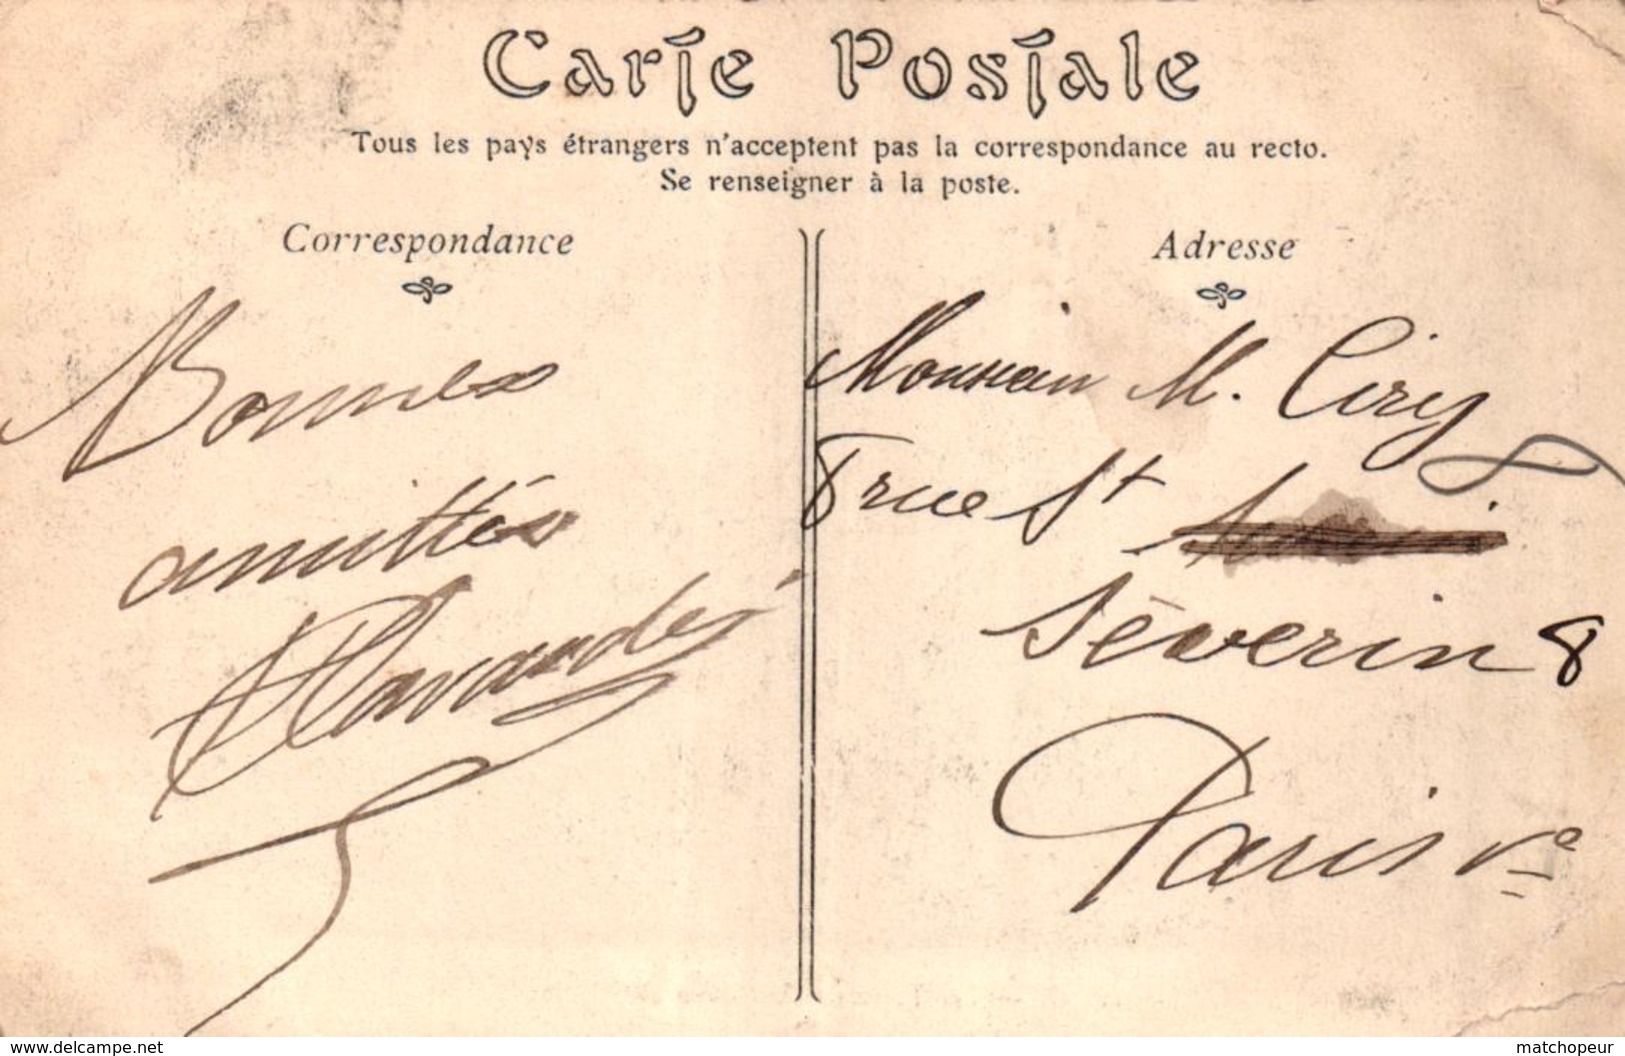 Carte Postale
Tous les pays étrangers n'acceptent pas la correspondance au recto.
Se renseigner à la poste.
Correspondance
Bonnes
amittés
Adresse
Monsieur M. Cirey
8 rue St
Séverin 8
Paris Ve
www.delcampe.net
matchopeur